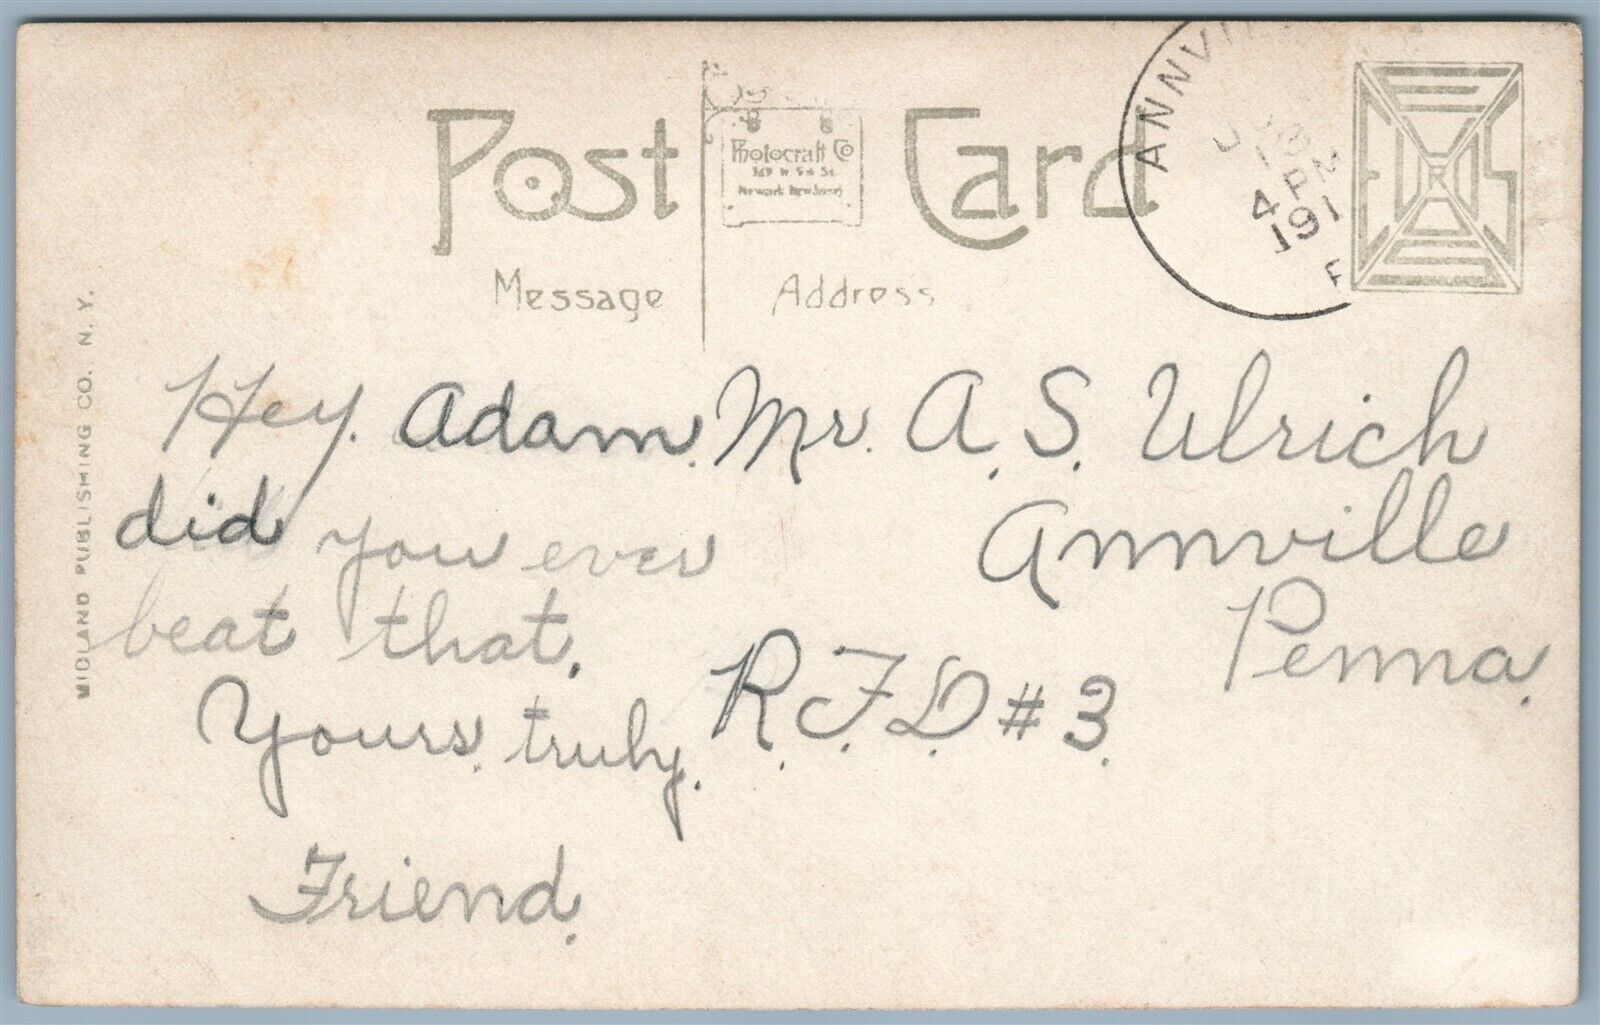 Post Card
Photocraft Co
Newark New Jersey
Message
Address
ANNVI
4 PM
191
MIDLAND PUBLISHING CO. N. Y.
Hey. Adam.
did you ever
beat that.
Yours. truly.
Friend.
Mr. A. S. Ulrich
Annville
Penna.
R. F. D. # 3.